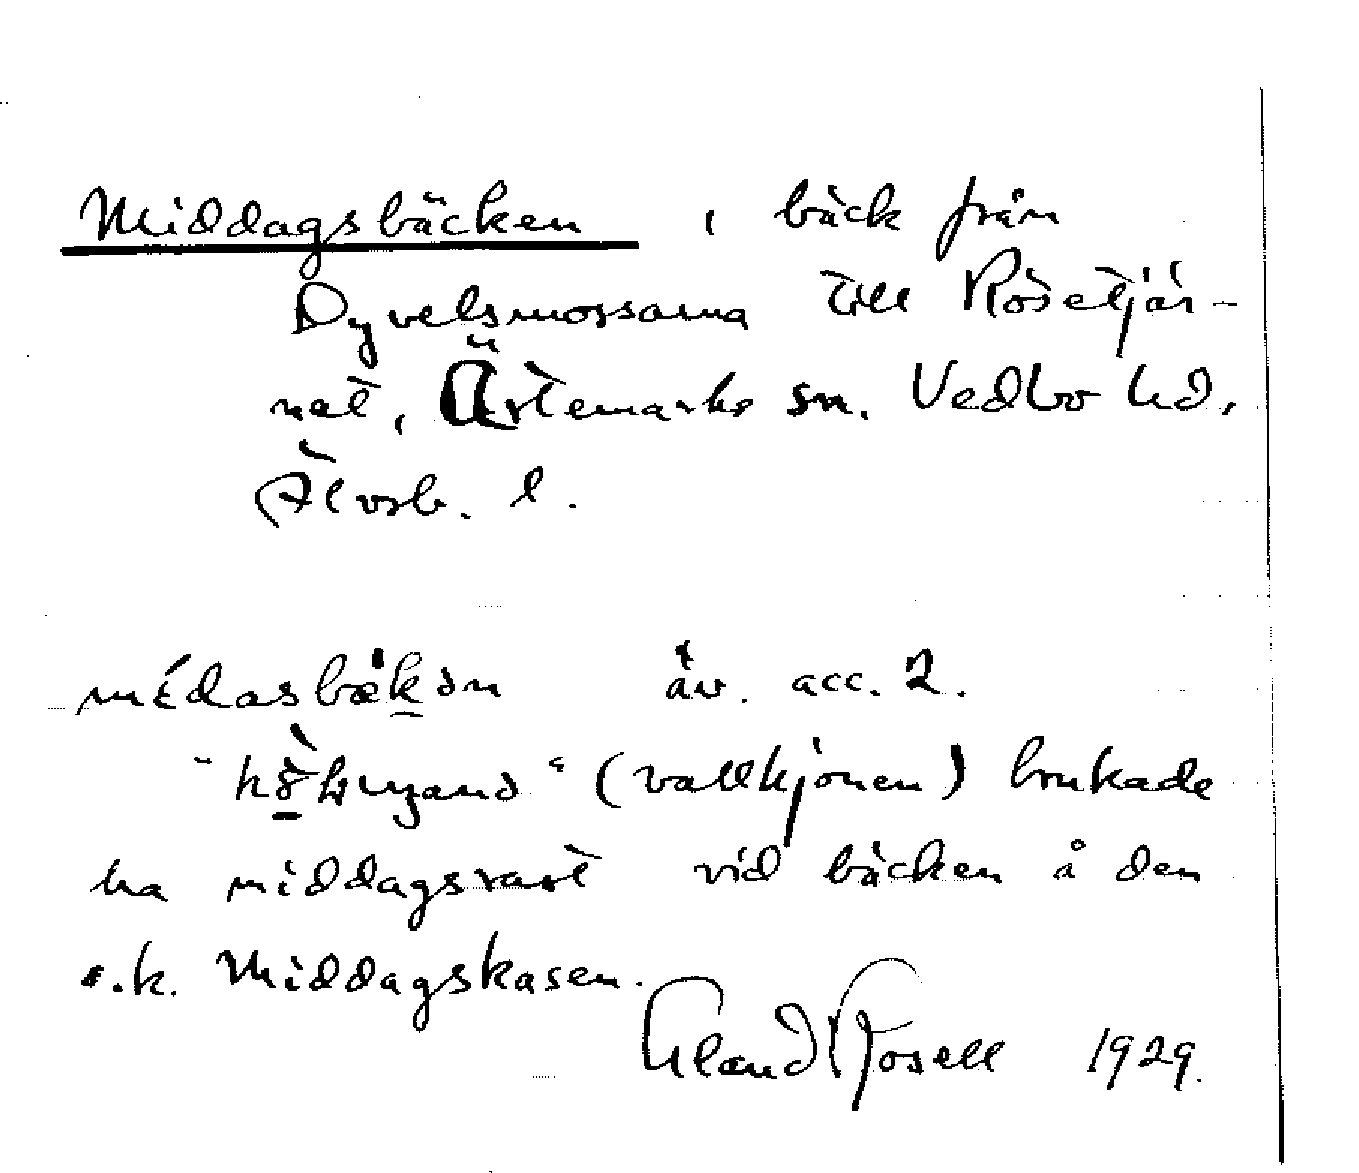 Middagsbäcken, bäck från
Dyvelsmossarna till Rösetjär-
net, Ärtemarks sn. Vedbo hd,
Älvsb. l.
médasbækən äv. acc. 2.
(vallhjonen) brukade
ha middagsrast vid bäcken å den
s.k. Middagskasen.
Erland Rosell 1929.